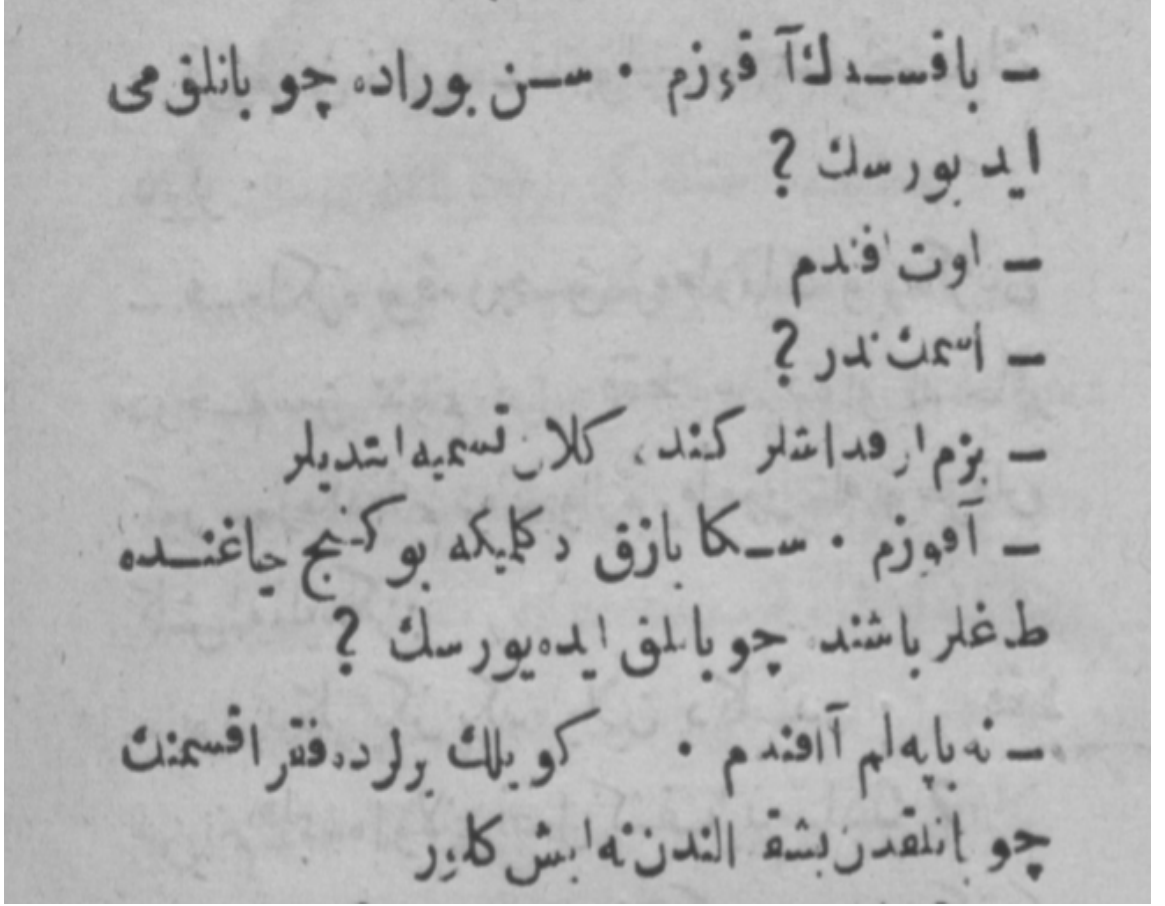 — باقسدك آ قیزم · سن بوراده چوبانلق می
ایدیورسك ?
— اوت افندم
— اسمك ندر ?
— بزم ارقداشلر كندی كلان تسمیه ایتدیلر
— آقوزم · سكا یازق دكلمیكه بو كنج چاغنده
طغلر باشنده چوبانلق ایده یورسك ?
— نه یاپه لم آ افندم · كویلك یرلرده فقرا قسمنك
چوبانلقدن بشقه الندن نه ایش كلیر